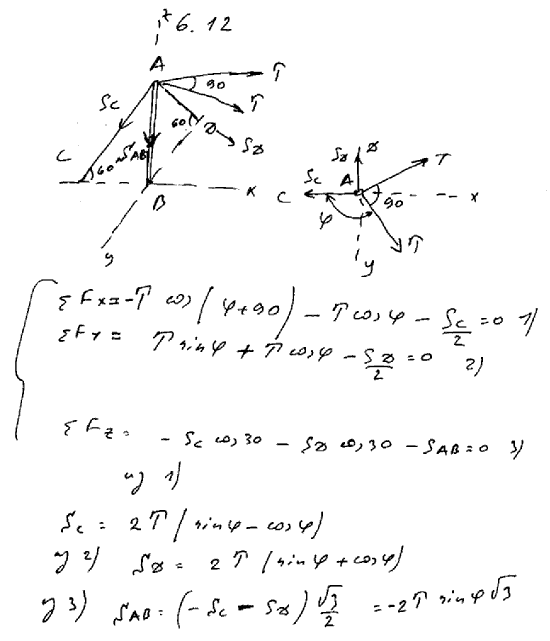 6.12
z
A
T
90
T
Sc
60
D
SD
C
60
SAB
B
x
y
SD
D
Sc
A
T
C
x
φ
90
T
y
ΣFx = -T cos(φ+90) - T cosφ - Sc/2 = 0 1)
ΣFy = T sinφ + T cosφ - SD/2 = 0 2)
ΣFz = - Sc cos30 - SD cos30 - SAB = 0 3)
из 1)
Sc = 2T(sinφ - cosφ)
из 2) SD = 2T(sinφ + cosφ)
из 3) SAB = (-Sc - SD) √3/2 = -2T sinφ √3